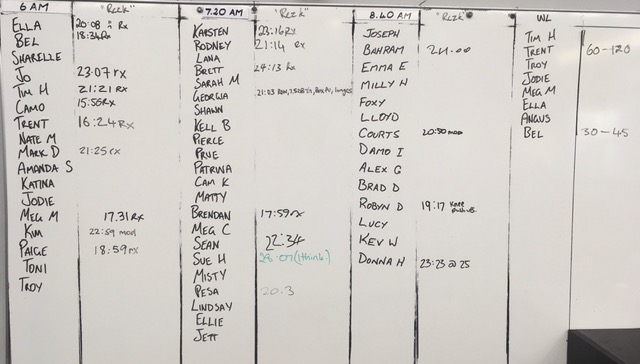 6 AM "Rezk"
ELLA 20:08 Rx
BEL 18:34Rx
SHARELLE
JO 23:07 rx
TIM H 21:21 RX
CAMO 15:56RX
TRENT 16:24 RX
NATE M
MARK D 21:25 rx
AMANDA S
KATINA
JODIE
MEG M 17.31 RX
KIM 22:59 mod
PAIGE 18:59 rx
TONI
TROY
7.20 AM "Rezk"
KARSTEN 23:16 RX
RODNEY 21:14 RX
LANA
BRETT 24:13 Rx
SARAH M
GEORGIA
SHAWN
KELL B
PIERCE
PRUE
PATRINA
CAM K
MATTY
BRENDAN 17:59 rx
MEG C
SEAN 22:34
SUE H 28:07 (I think.)
MISTY
PESA 20.3
LINDSAY
ELLIE
JETT
8.40 AM "Rezk"
JOSEPH
BAHRAM 24:00
EMMA E
MILLY H
FOXY
LLOYD
COURTS 20:50 mod
DAMO I
ALEX G
BRAD D
ROBYN D 19:17 knee
LUCY
KEV W
DONNA H 23:23 @ 25
WL
TIM H
TRENT 60-120
TROY
JODIE
MEG M
ELLA
ANGUS
BEL 30-45